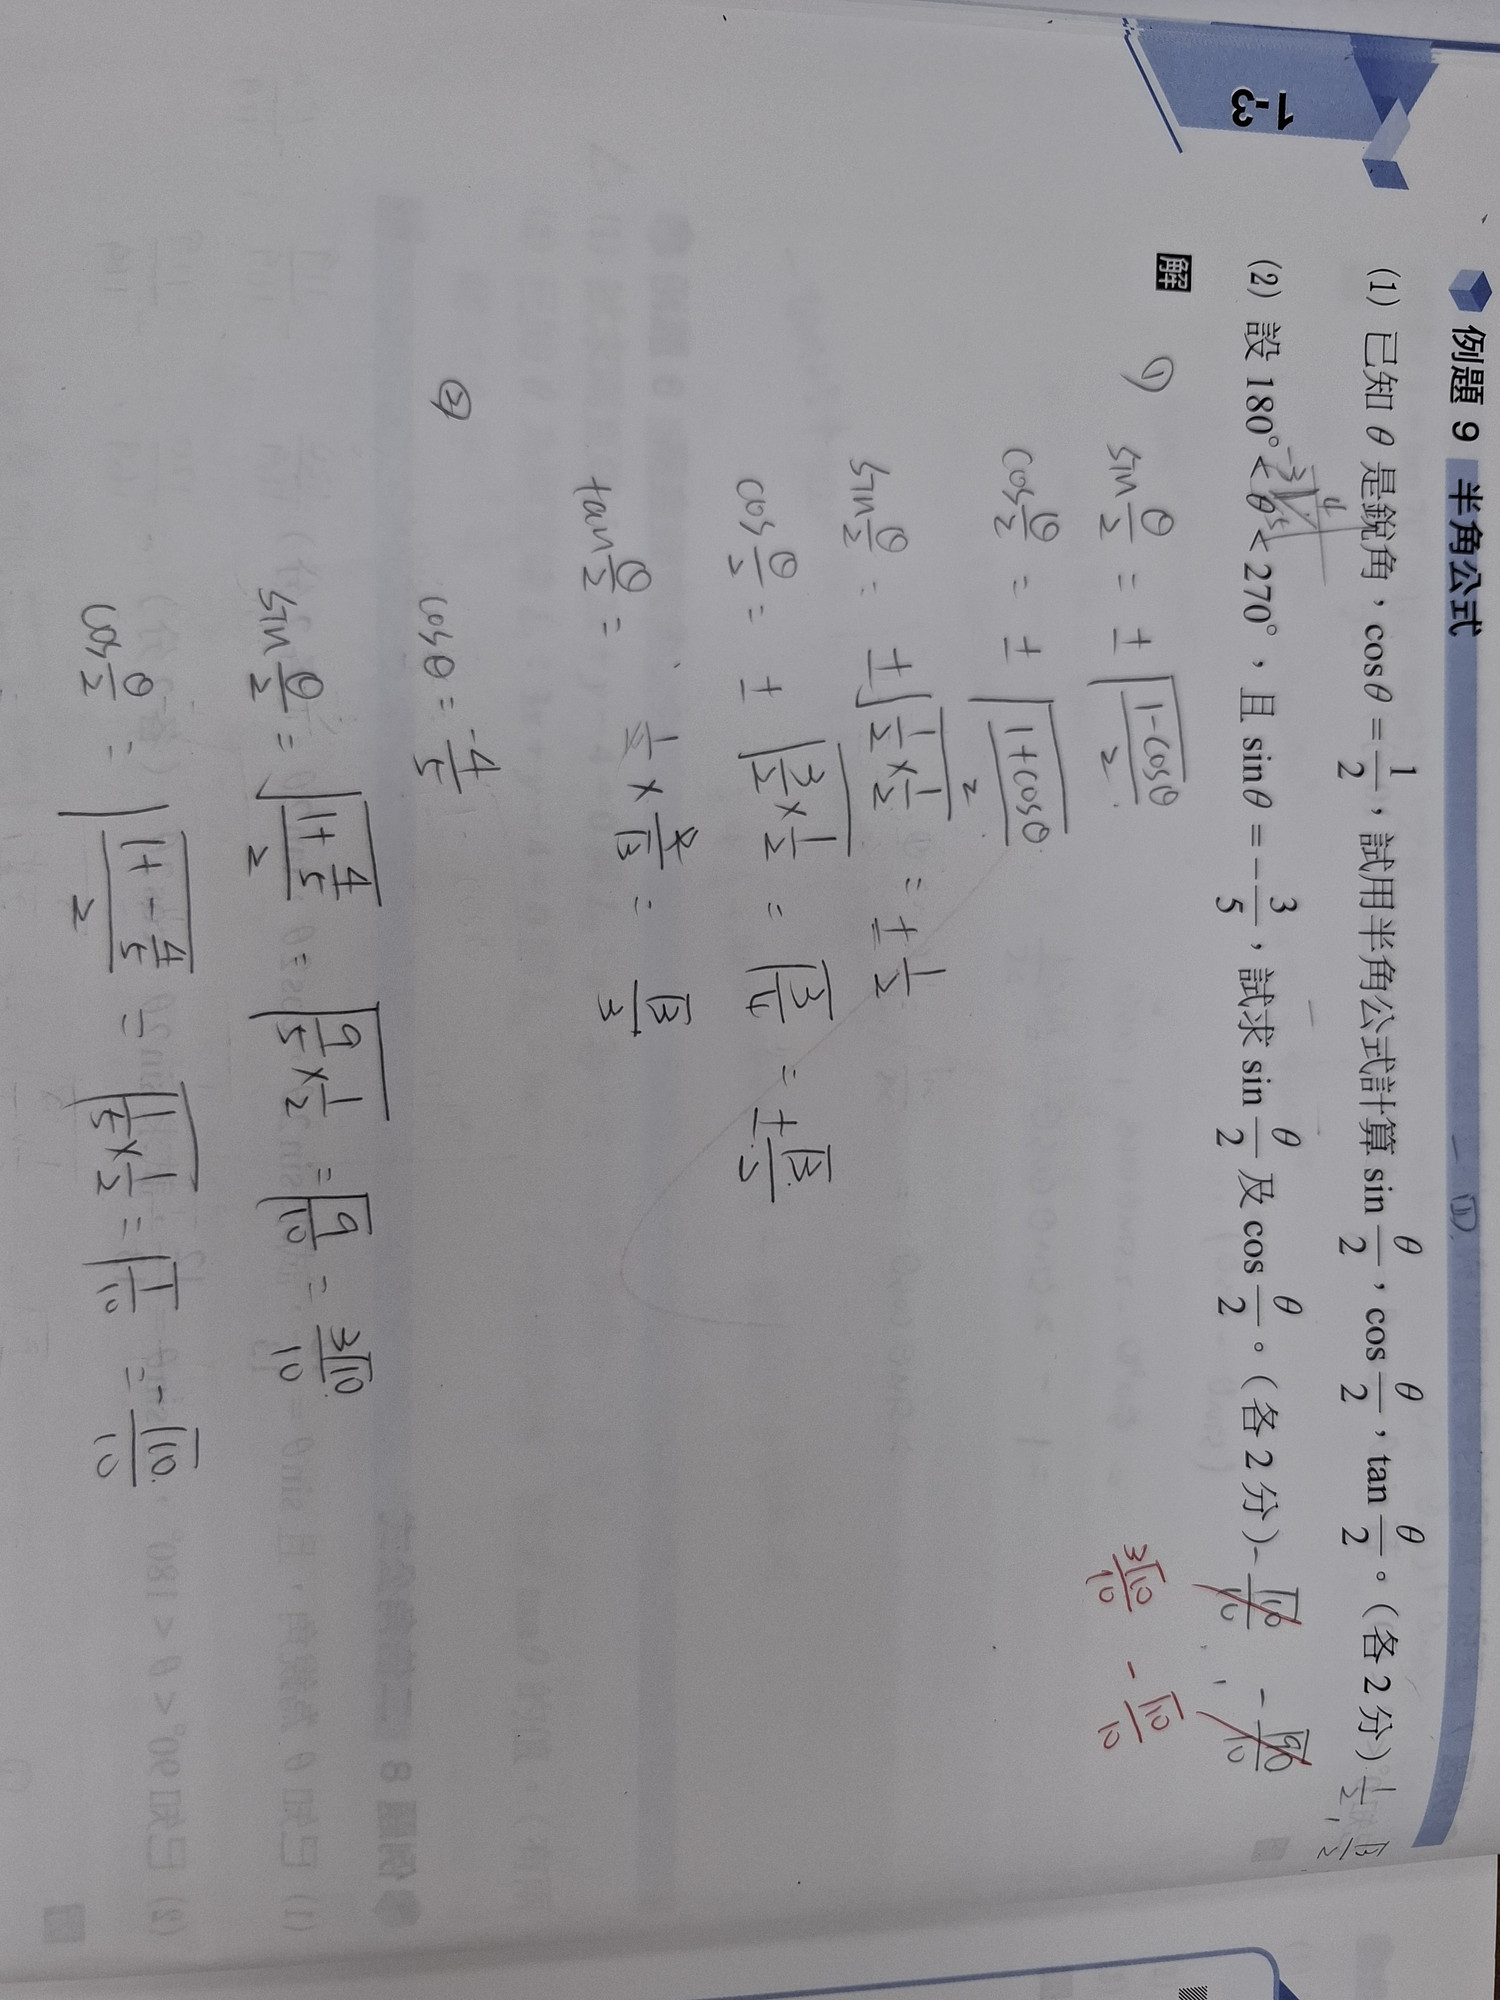 1-3
例題 9 半角公式
(1) 已知 θ 是銳角，cosθ = 1/2，試用半角公式計算 sin θ/2，cos θ/2，tan θ/2。（各2分） 1/2, √3/2
(2) 設 180° < θ < 270°，且 sinθ = -3/5，試求 sin θ/2 及 cos θ/2。（各2分）
3√10/10 -√10/10
解
1) sin θ/2 = ± √((1-cosθ)/2)
cos θ/2 = ± √((1+cosθ)/2)
sin θ/2 = ± √(1/2 × 1/2) = ± 1/2
cos θ/2 = ± √(3/2 × 1/2) = √(3/4) = ± √3/2
tan θ/2 = 1/2 × 2/√3 = √3/3
(2) cosθ = -4/5
sin θ/2 = √((1+4/5)/2) = √(9/5 × 1/2) = √(9/10) = 3√10/10
cos θ/2 = √((1+ -4/5)/2) = √(1/5 × 1/2) = √(1/10) = -√10/10